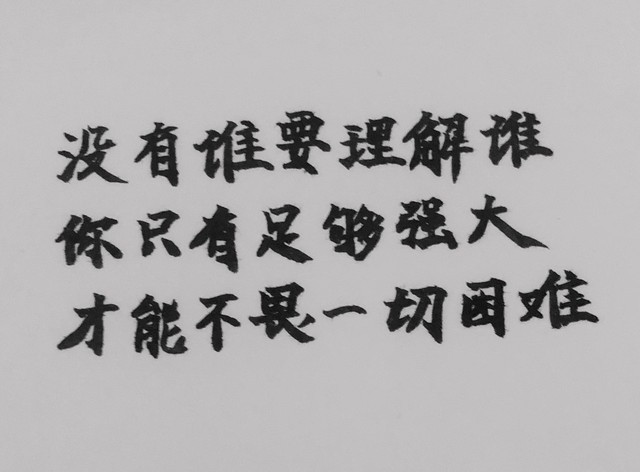 没有谁要理解谁
你只有足够强大
才能不畏一切困难